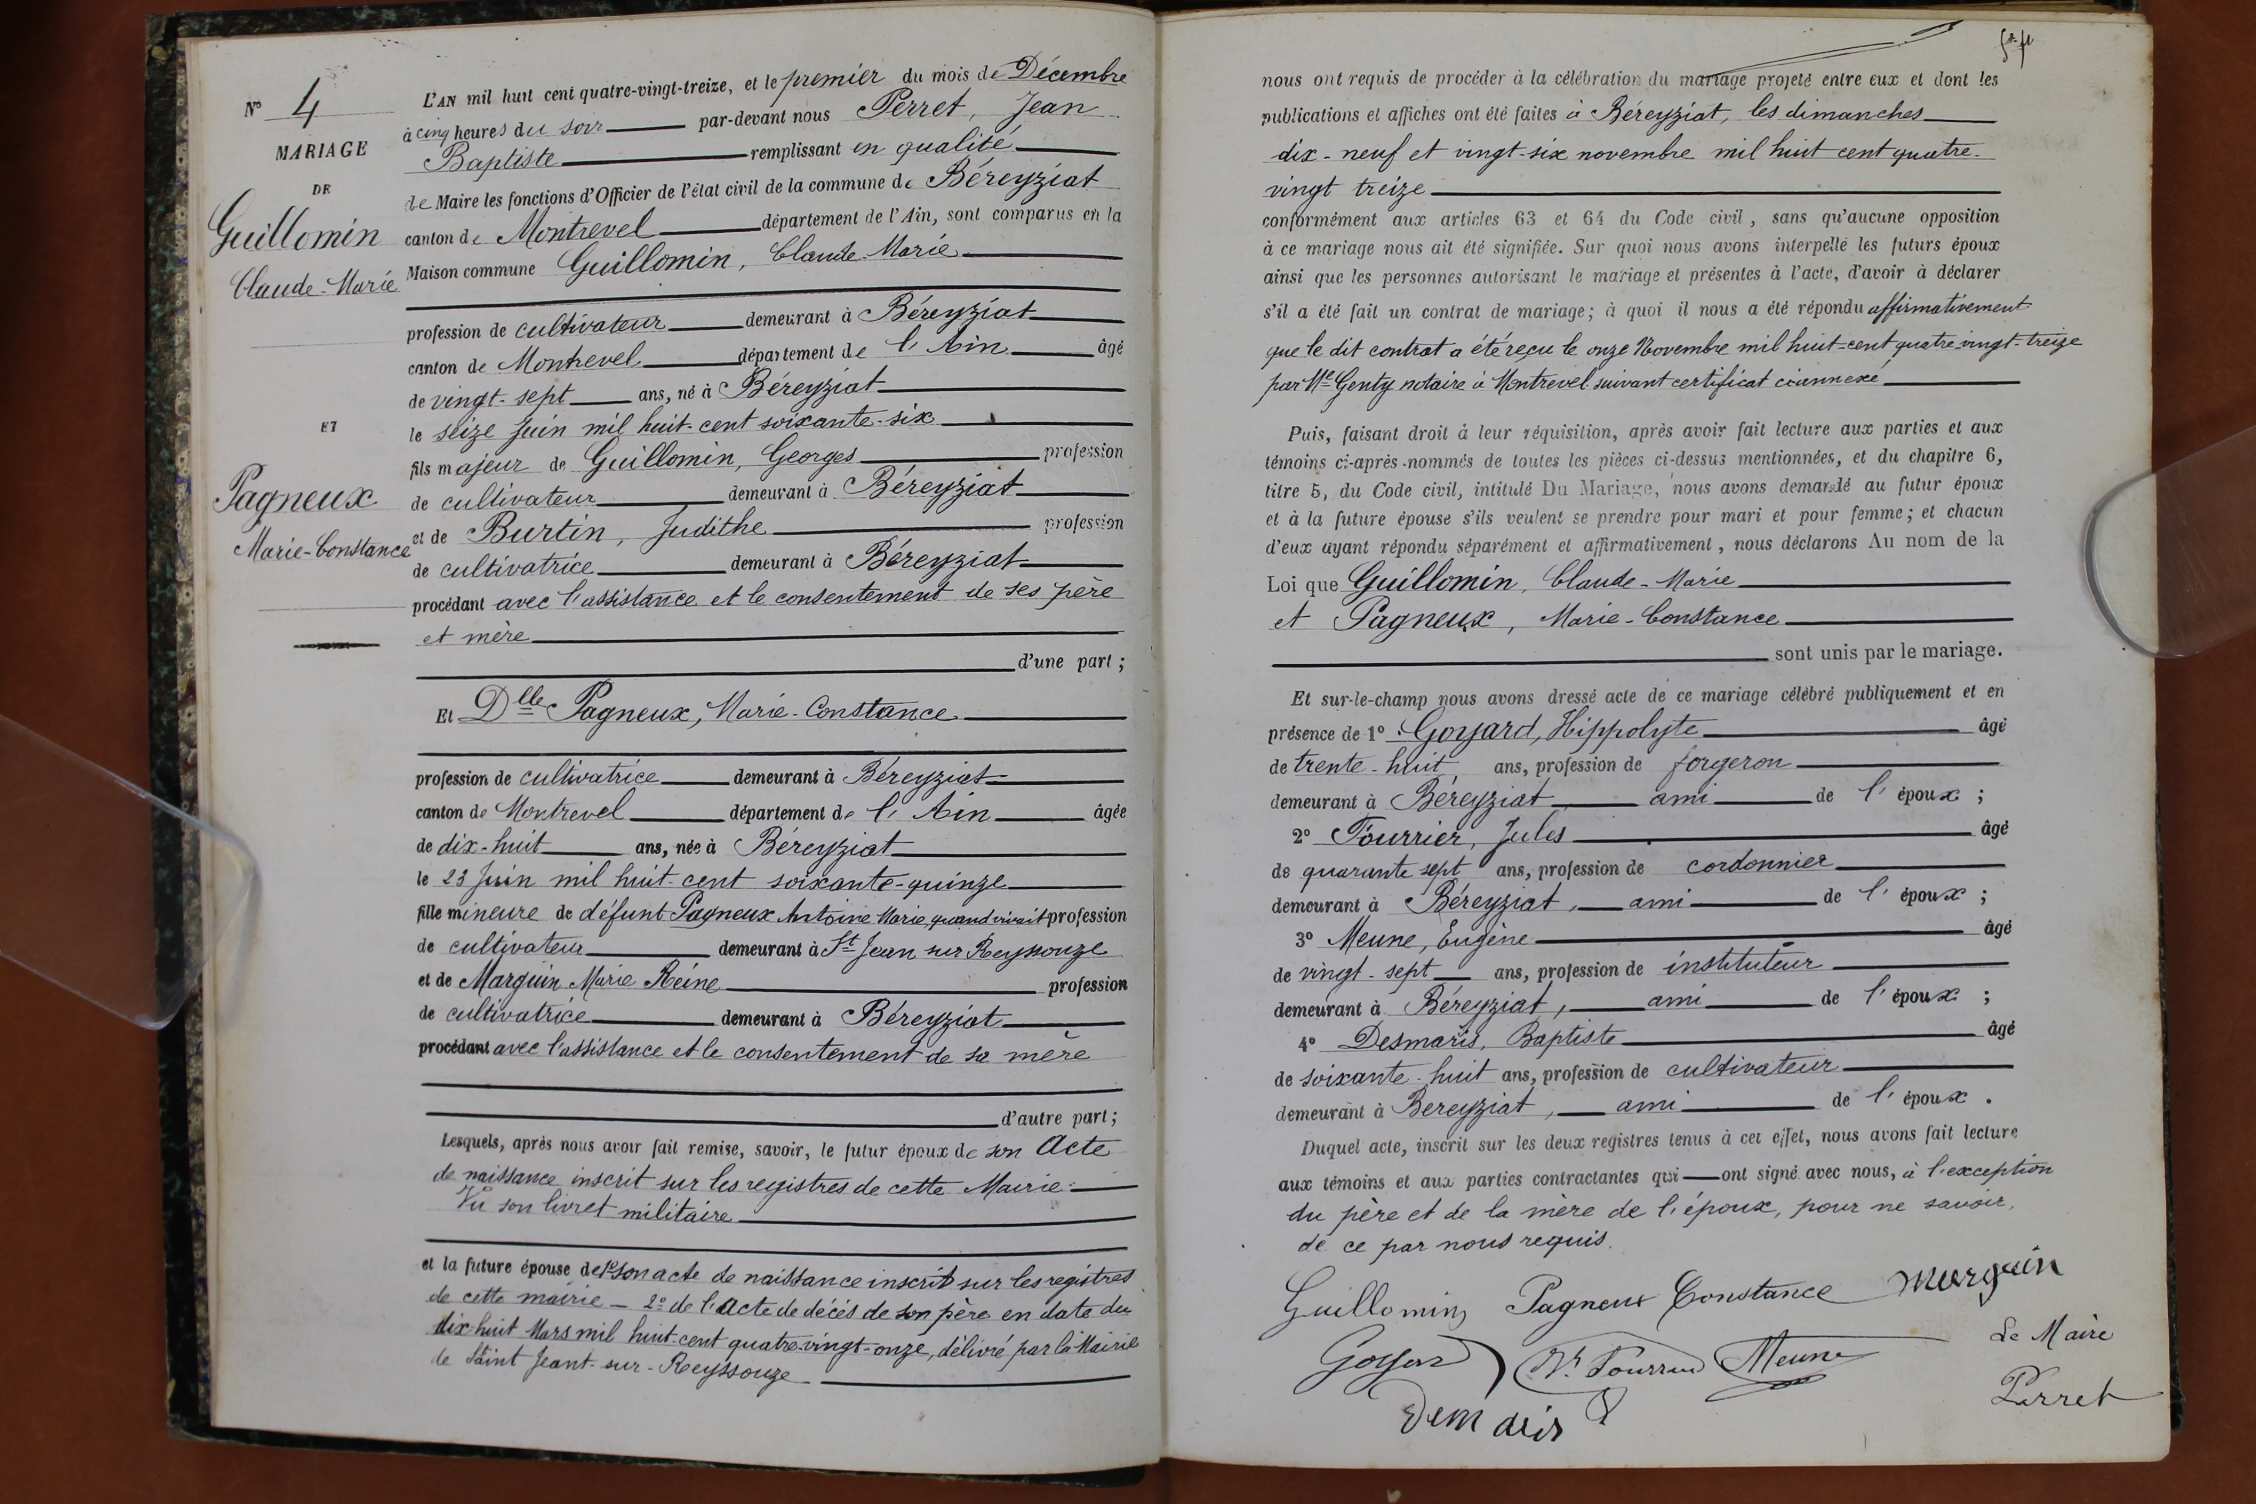 N° 4
MARIAGE
DE
Guillomin
Claude-Marie
ET
Pagneux
Marie-Constance
L'AN mil huit cent quatre-vingt-treize, et le premier du mois de Décembre
à cinq heures du soir par-devant nous Perret, Jean
Baptiste remplissant en qualité
de Maire les fonctions d'Officier de l'état civil de la commune de Béreyziat
canton de Montrevel département de l'Ain, sont comparus en la
Maison commune Guillomin, Claude-Marie
profession de cultivateur demeurant à Béreyziat
canton de Montrevel département de l'Ain âgé
de vingt-sept ans, né à Béreyziat
le seize Juin mil huit-cent soixante-six
fils majeur de Guillomin, Georges profession
de cultivateur demeurant à Béreyziat
et de Burtin, Judithe profession
de cultivatrice demeurant à Béreyziat
procédant avec l'assistance et le consentement de ses père
et mère
d'une part;
Et Dlle Pagneux, Marie-Constance
profession de cultivatrice demeurant à Béreyziat
canton de Montrevel département de l'Ain âgée
de dix-huit ans, née à Béreyziat
le 23 Juin mil huit-cent soixante-quinze
fille mineure de défunt Pagneux Antoine Marie, quand vivait profession
de cultivateur demeurant à St Jean sur Reyssouze
et de Marguin Marie Reine profession
de cultivatrice demeurant à Béreyziat
procédant avec l'assistance et le consentement de sa mère
d'autre part;
Lesquels, après nous avoir fait remise, savoir, le futur époux de son Acte
de naissance inscrit sur les registres de cette Mairie.
Vu son livret militaire
et la future épouse de 1° son acte de naissance inscrit sur les registres
de cette mairie — 2° de l'Acte de décés de son père en date du
dix-huit Mars mil huit-cent quatre-vingt-onze, délivré par la Mairie
de Saint Jeant-sur-Reyssouze
nous ont requis de procéder à la célébration du mariage projeté entre eux et dont les
publications et affiches ont été faites à Béreyziat, les dimanches
dix-neuf et vingt-six novembre mil huit cent quatre-
vingt treize
conformément aux articles 63 et 64 du Code civil, sans qu'aucune opposition
à ce mariage nous ait été signifiée. Sur quoi nous avons interpellé les futurs époux
ainsi que les personnes autorisant le mariage et présentes à l'acte, d'avoir à déclarer
s'il a été fait un contrat de mariage; à quoi il nous a été répondu affirmativement
que le dit contrat a été reçu le onze Novembre mil huit-cent quatre-vingt-treize
par Me Genty notaire à Montrevel suivant certificat ci-annexé
Puis, faisant droit à leur réquisition, après avoir fait lecture aux parties et aux
témoins ci-après nommés de toutes les pièces ci-dessus mentionnées, et du chapitre 6,
titre 5, du Code civil, intitulé Du Mariage, nous avons demandé au futur époux
et à la future épouse s'ils veulent se prendre pour mari et pour femme; et chacun
d'eux ayant répondu séparément et affirmativement, nous déclarons Au nom de la
Loi que Guillomin, Claude-Marie
et Pagneux, Marie-Constance
sont unis par le mariage.
Et sur-le-champ nous avons dressé acte de ce mariage célébré publiquement et en
présence de 1° Goyard, Hippolyte âgé
de trente-huit, ans, profession de forgeron
demeurant à Béreyziat ami de l'époux;
2° Fourrier, Jules âgé
de quarante sept ans, profession de cordonnier
demeurant à Béreyziat, ami de l'époux;
3° Meune, Eugène âgé
de vingt-sept ans, profession de instituteur
demeurant à Béreyziat, ami de l'époux;
4° Desmaris, Baptiste âgé
de soixante-huit ans, profession de cultivateur
demeurant à Bereyziat, ami de l'époux.
Duquel acte, inscrit sur les deux registres tenus à cet effet, nous avons fait lecture
aux témoins et aux parties contractantes qui ont signé avec nous, à l'exception
du père et de la mère de l'époux, pour ne savoir,
de ce par nous requis.
Guillomin Pagneux Constance Marguin
Meune Le Maire
Perret